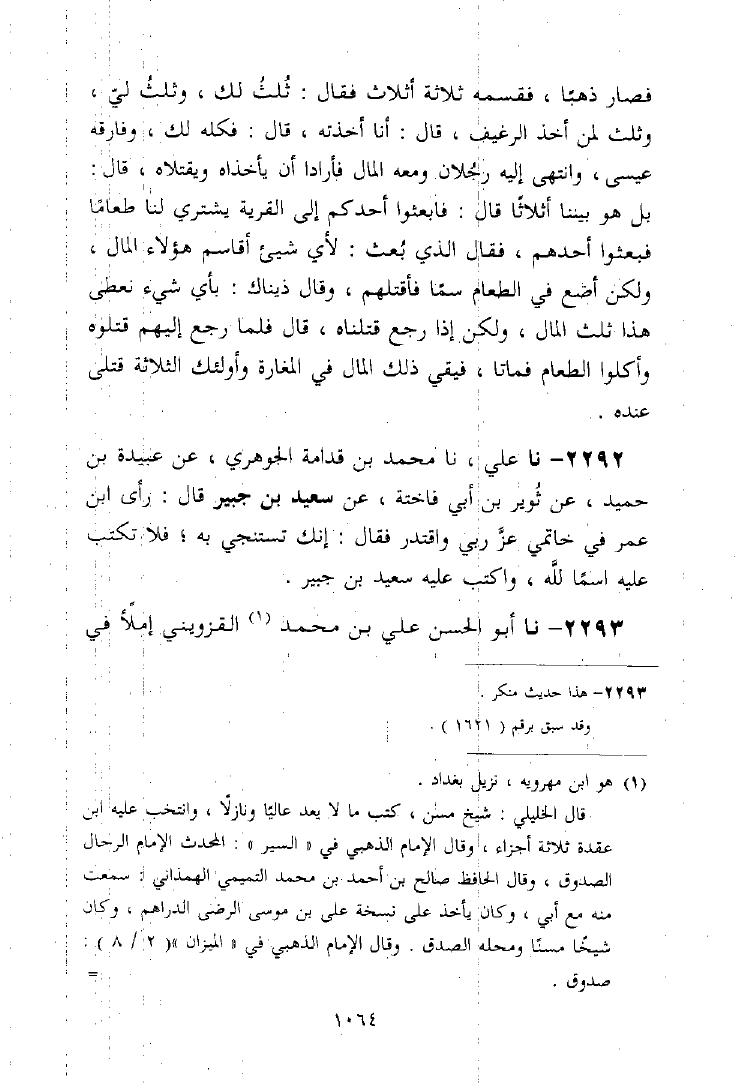 فصار ذهبًا ، فقسمه ثلاثة أثلاث فقال : ثُلثُ لك ، وثلثُ ليّ ،
وثلث لمن أخذ الرغيف ، قال : أنا أخذته ، قال : فكله لك ، وفارقه
عيسى ، وانتهى إليه رجُلان ومعه المال فأرادا أن يأخذاه ويقتلاه ، قال :
بل هو بيننا أثلاثًا قال : فابعثوا أحدكم إلى القرية يشتري لنا طعامًا
فبعثوا أحدهم ، فقال الذي بُعث : لأي شيئ أقاسم هؤلاء المال ،
ولكن أضع في الطعام سمًا فأقتلهم ، وقال ذيناك : بأي شيء نعطى
هذا ثلث المال ، ولكن إذا رجع قتلناه ، قال فلما رجع إليهم قتلوه
وأكلوا الطعام فماتا ، فيقي ذلك المال في المغارة وأولئك الثلاثة قتلى
عنده .
٢٢٩٢- نا علي ، نا محمد بن قدامة الجوهري ، عن عبيدة بن
حميد ، عن ثُوير بن أبي فاختة ، عن سعيد بن جبير قال : رأى ابن
عمر في خاتمي عزَّ ربي واقتدر فقال : إنك تستنجي به ؛ فلا تكتب
عليه اسمًا للَّه ، واكتب عليه سعيد بن جبير .
٢٢٩٣- نا أبو الحسن علي بن محمد (١) القزويني إملأً في
٢٢٩٣- هذا حديث منكر .
وقد سبق برقم ( ١٦٢١ ) .
(١) هو ابن مهرويه ، نزيل بغداد .
قال الخليلي : شيخ مسن ، كتب ما لا يعد عاليًا ونازلًا ، وانتخب عليه ابن
عقدة ثلاثة أجزاء ، وقال الإمام الذهبي في « السير » : المحدث الإمام الرحال
الصدوق ، وقال الحافظ صالح بن أحمد بن محمد التميمي الهمذاني : سمعت
منه مع أبي ، وكان يأخذ على نسخة علي بن موسى الرضى الدراهم ، وكان
شيخًا مسنًا ومحله الصدق . وقال الإمام الذهبي في « الميزان »( ٢ / ٨ ) :
صدوق . =
١٠٦٤